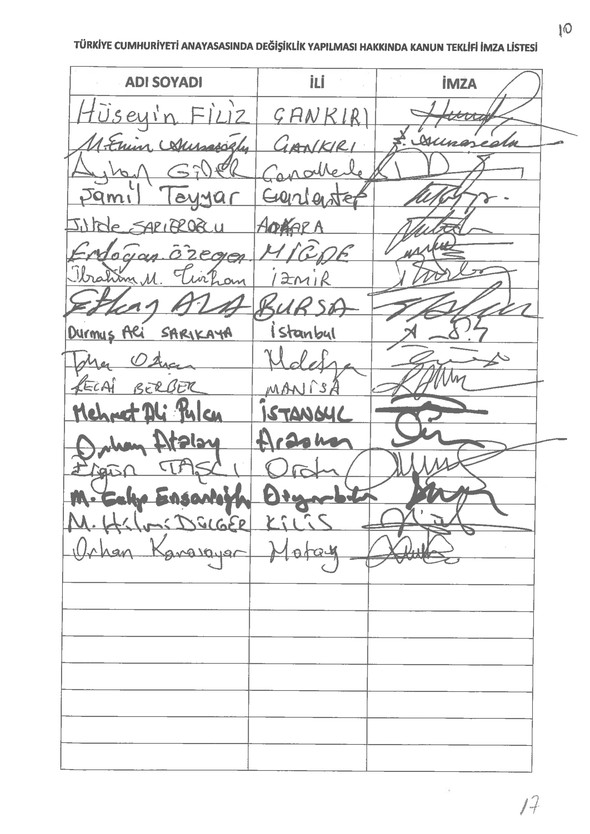 10
TÜRKİYE CUMHURİYETİ ANAYASASINDA DEĞİŞİKLİK YAPILMASI HAKKINDA KANUN TEKLİFİ İMZA LİSTESİ
ADI SOYADI İLİ İMZA
Hüseyin FİLİZ ÇANKIRI
M. Emin ÇANKIRI
Ayhan GİDER Çanakkale
Şamil Tayyar Gaziantep
Jülide SARIEROĞLU ANKARA
Erdoğan ÖZEGEN NİĞDE
İbrahim M. Turhan İZMİR
Efkan ALA BURSA
Durmuş Ali SARIKAYA İstanbul
Taha Özhan Malatya
RECAİ BERBER MANİSA
Mehmet Ali Pulcu İSTANBUL
Orhan Atalay Ardahan
Ergün TAŞCI Ordu
M. Galip Ensarioğlu Diyarbakır
M. Hilmi DÜLGER KİLİS
Orhan Karasayar Hatay
17